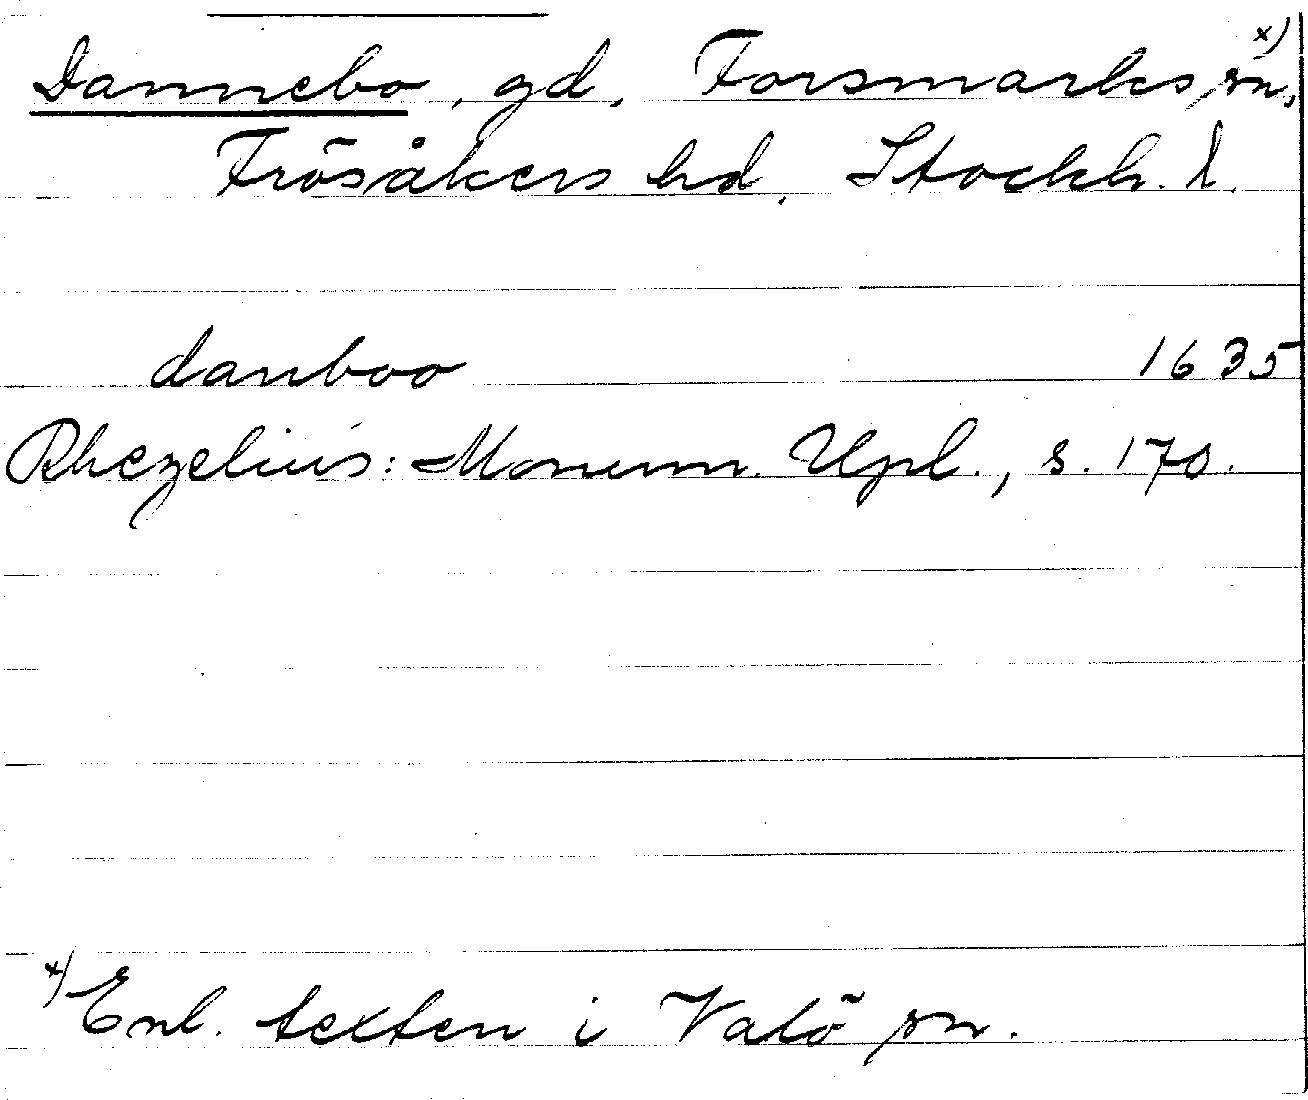 Dannebo, gd, Forsmarks sn, x)
Frösåkers hd, Stockh. l.
danboo 1635
Rhezelius: Monum. Upl., s. 170.
x) Enl. texten i Valö sn.